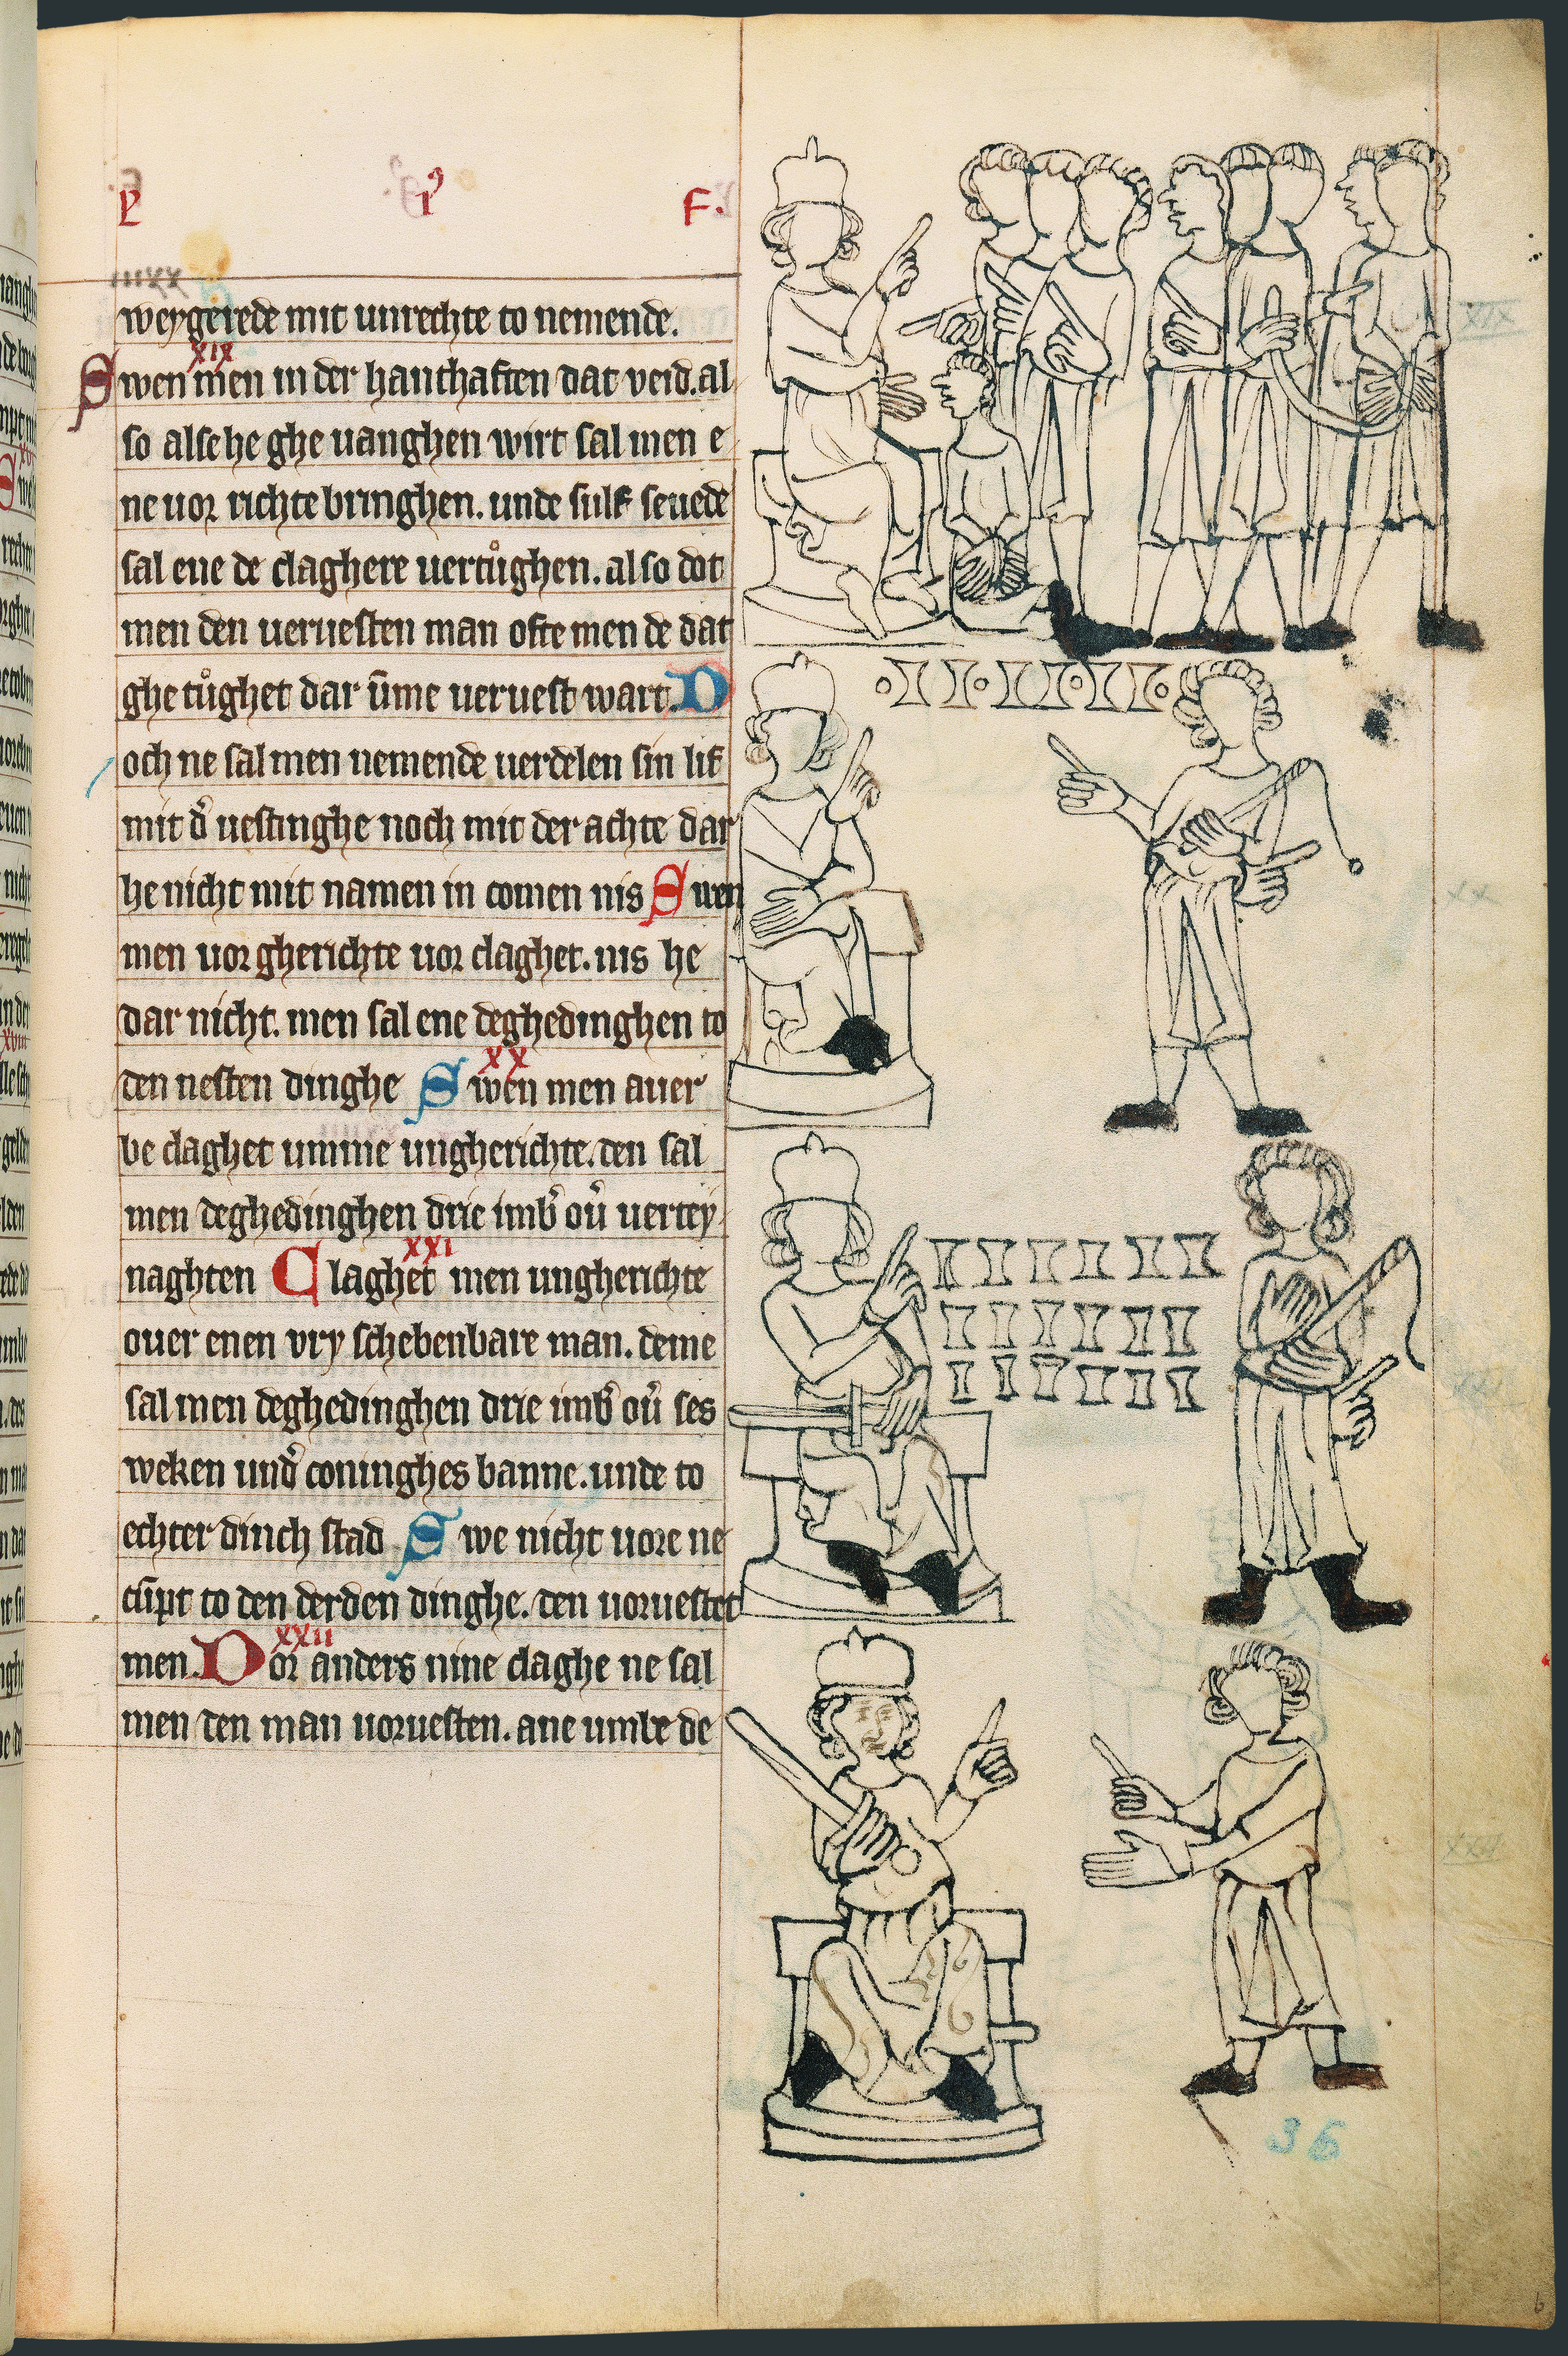 L I⁹ F.
IIIXX
weygerede mit unrechte to nemende.
XIX
Swen men in der hanthaften dat veid. al
so alse he ghe uanghen wirt sal men e
ne uor richte bringhen. unde sulf seuede
sal ene de claghere uertůghen. also dot
men den ueruesten man ofte men de dat
ghe tůghet dar ūme ueruest wart. N
och ne sal men nemende uerdelen sin lif
mit d̛ uestinghe noch mit der achte dar
he nicht mit namen in comen nis Swen
men uor gherichte uor claghet. nis he
dar nicht. men sal ene deghedinghen to
XX
den nesten dinghe Swen men auer
be claghet umme ungherichte. den sal
men deghedinghen drie imb̛ oư uertey
XXI
naghten Claghet men ungherichte
ouer enen vry schebenbare man. deme
sal men deghedinghen drie imb̛ oư ses
weken und̛ coninghes banne. unde to
echter dinch stad Swe nicht uore ne
cūpt to den derden dinghe. den uoruestet
XXII
men. Vor anders nine claghe ne sal
men den man uoruesten. ane umbe de
XIX
XX
XXI
XXII
36
6